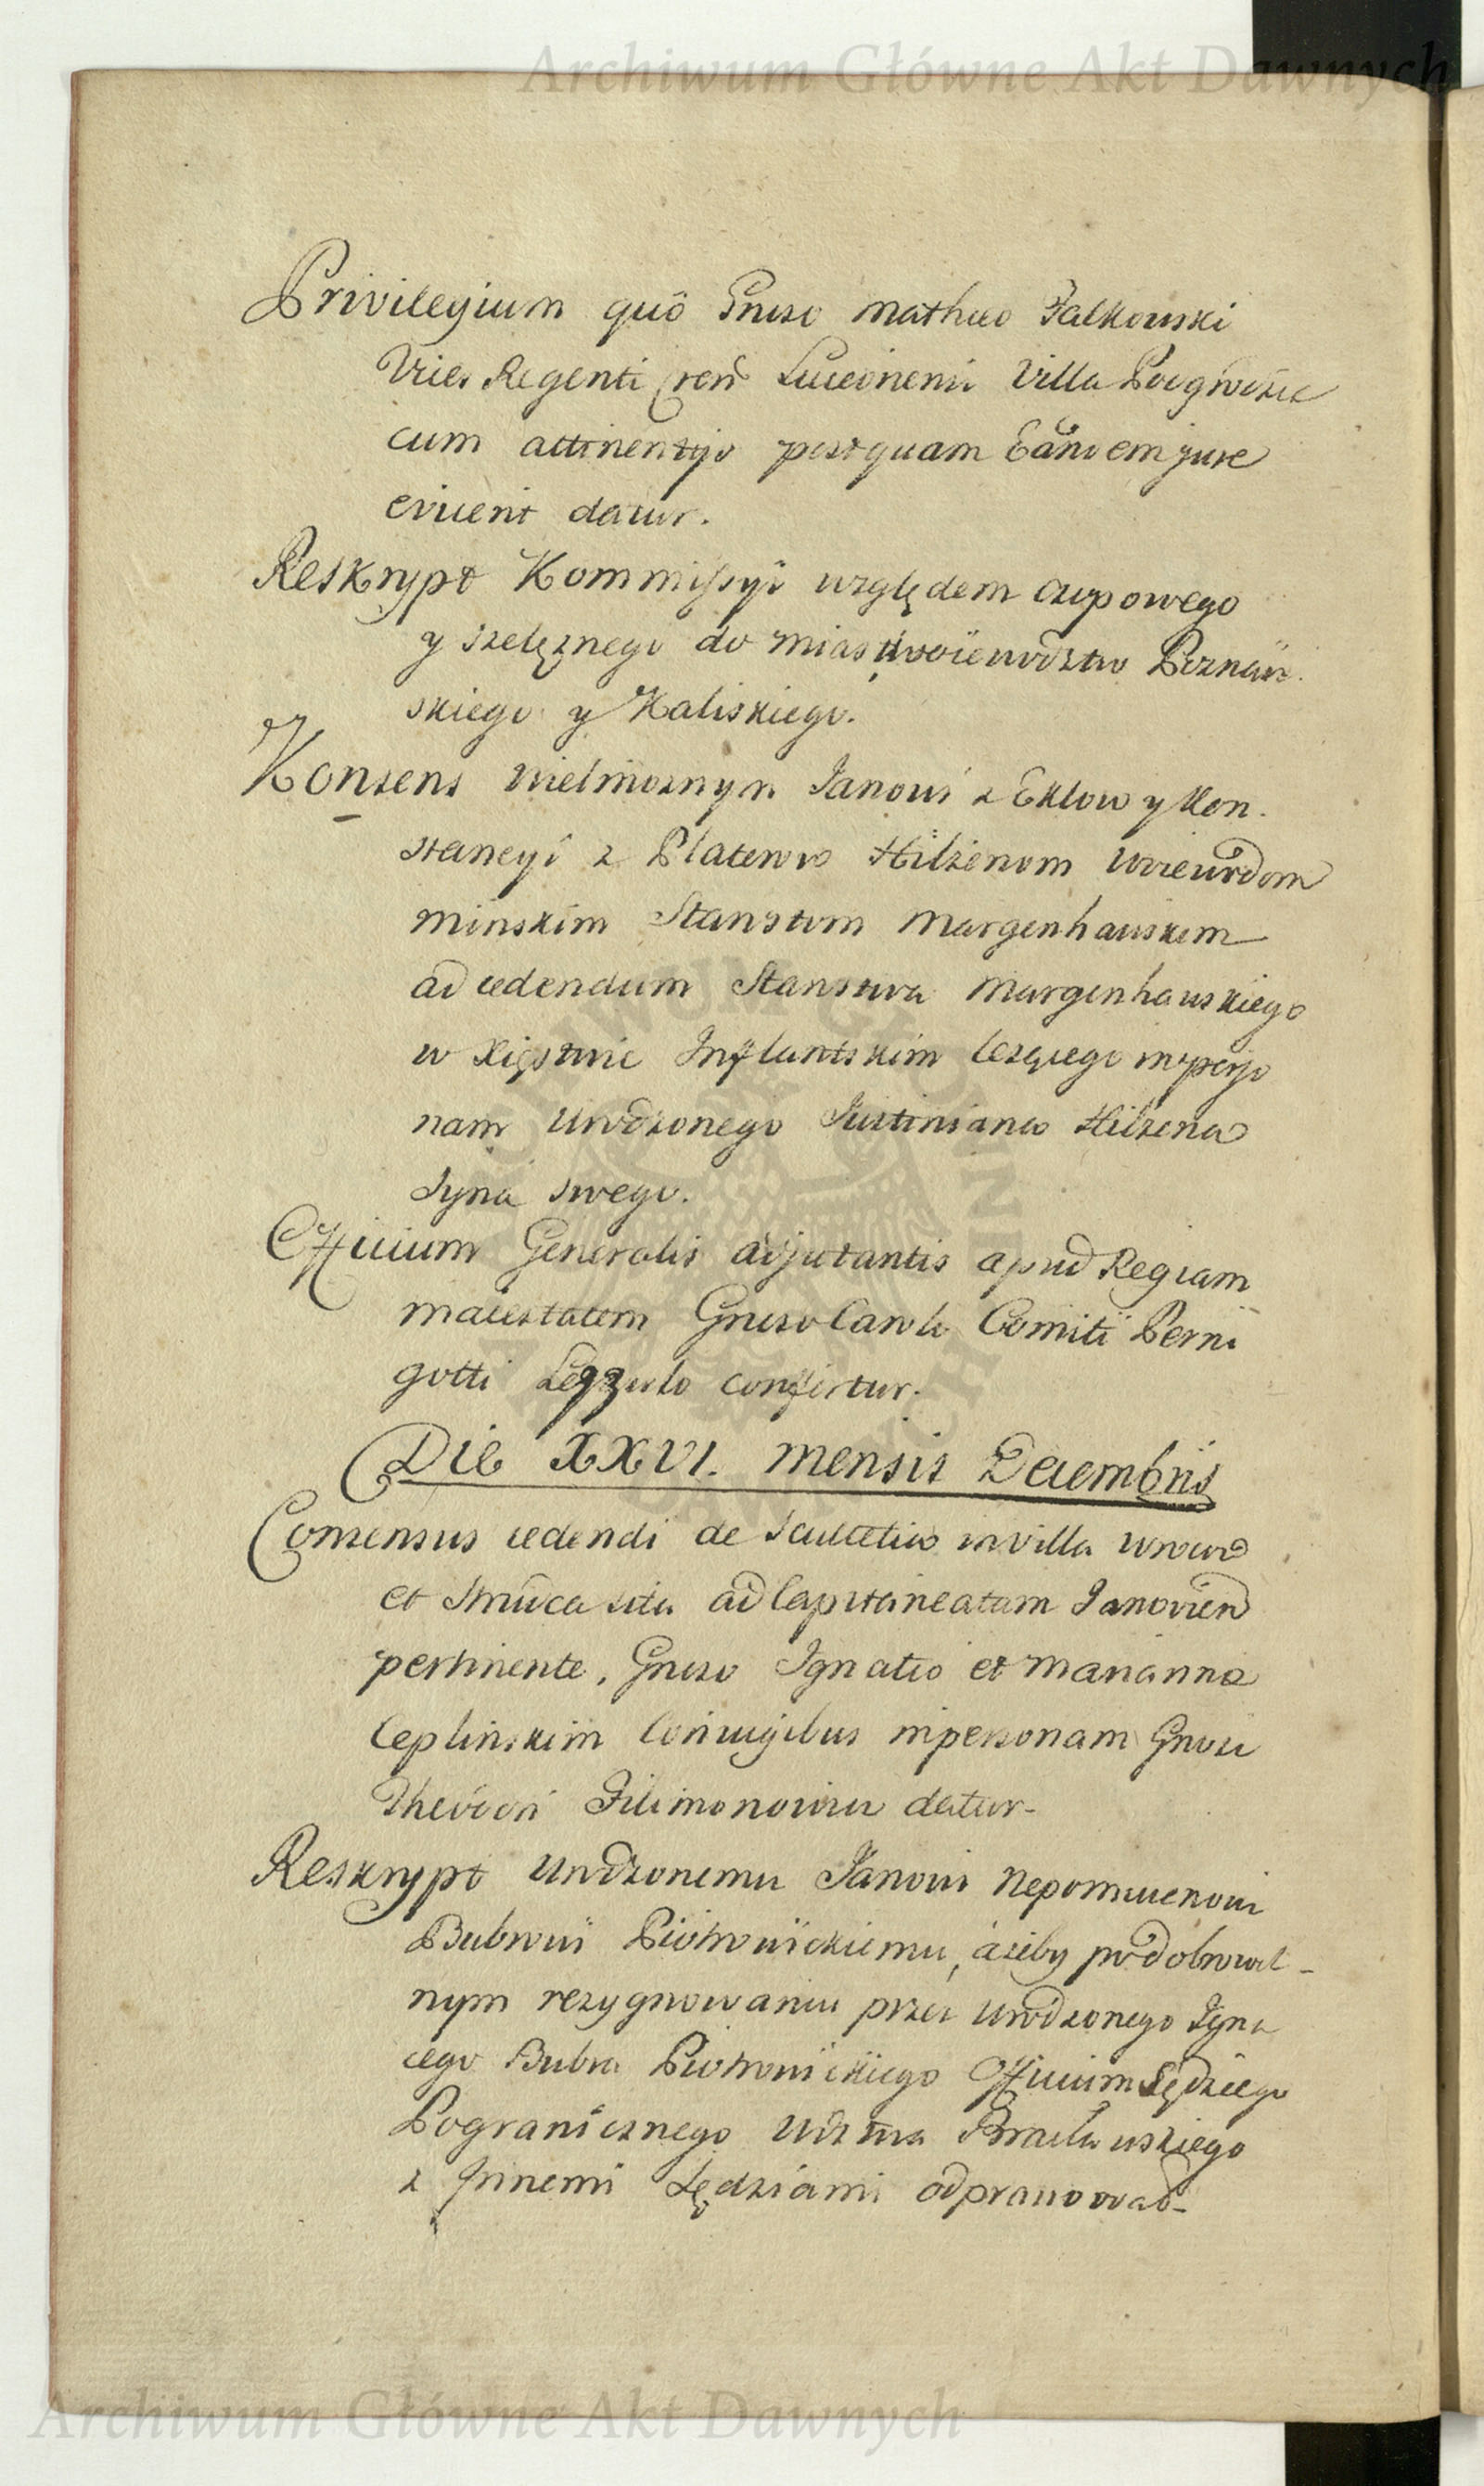 Archiwum Główne Akt Dawnych
Privilegium quô Gnoso Matheo Falkowski
Vices Regenti Cren Luceorien Villa
cum attinentijs postquam Eandem jure
evicerit datur.
Reskrypt Kommissyi względem czopowego
y szelężnego do miast woiewodztw Poznań
skiego y Kaliskiego.
Konsens Wielmożnym Janowi z Eklow y Kon
stancyi z Platerow Hilzenom Woiewodom
Minskim Starostom Margenhauskim
ad cedendum Starostwa Margenhauskiego
w Xięstwie Inflantskim leżącego in perso
nam Urodzonego Justiniana Hilzena
Syna swego.
Officium Generalis adjutantis apud Regiam
Maiestatem Gnoso Carolo Comiti Perni
gotti conffertur.
Die XXVI. Mensis Decembris
Consensus cedendi de Scultetia in villa
et sita ad Capitaneatum Janovien
pertinente, Gnoso Ignatio et Marianna
Ceplinskim Coniugibus in personam Gnosi
Theodori Filimonowicz datur.
Reskrypt Urodzonemu Janowi Nepomucenowi
Bubrowi Piotrowickiemu, ażeby po dobrowol-
nym rezygnowaniu przez Urodzonego Igna
cego Bubra Piotrowickiego Officium Sędziego
Pogranicznego Wdztwa Bracławskiego
z Innemi Sędziami odprawował
Archiwum Główne Akt Dawnych